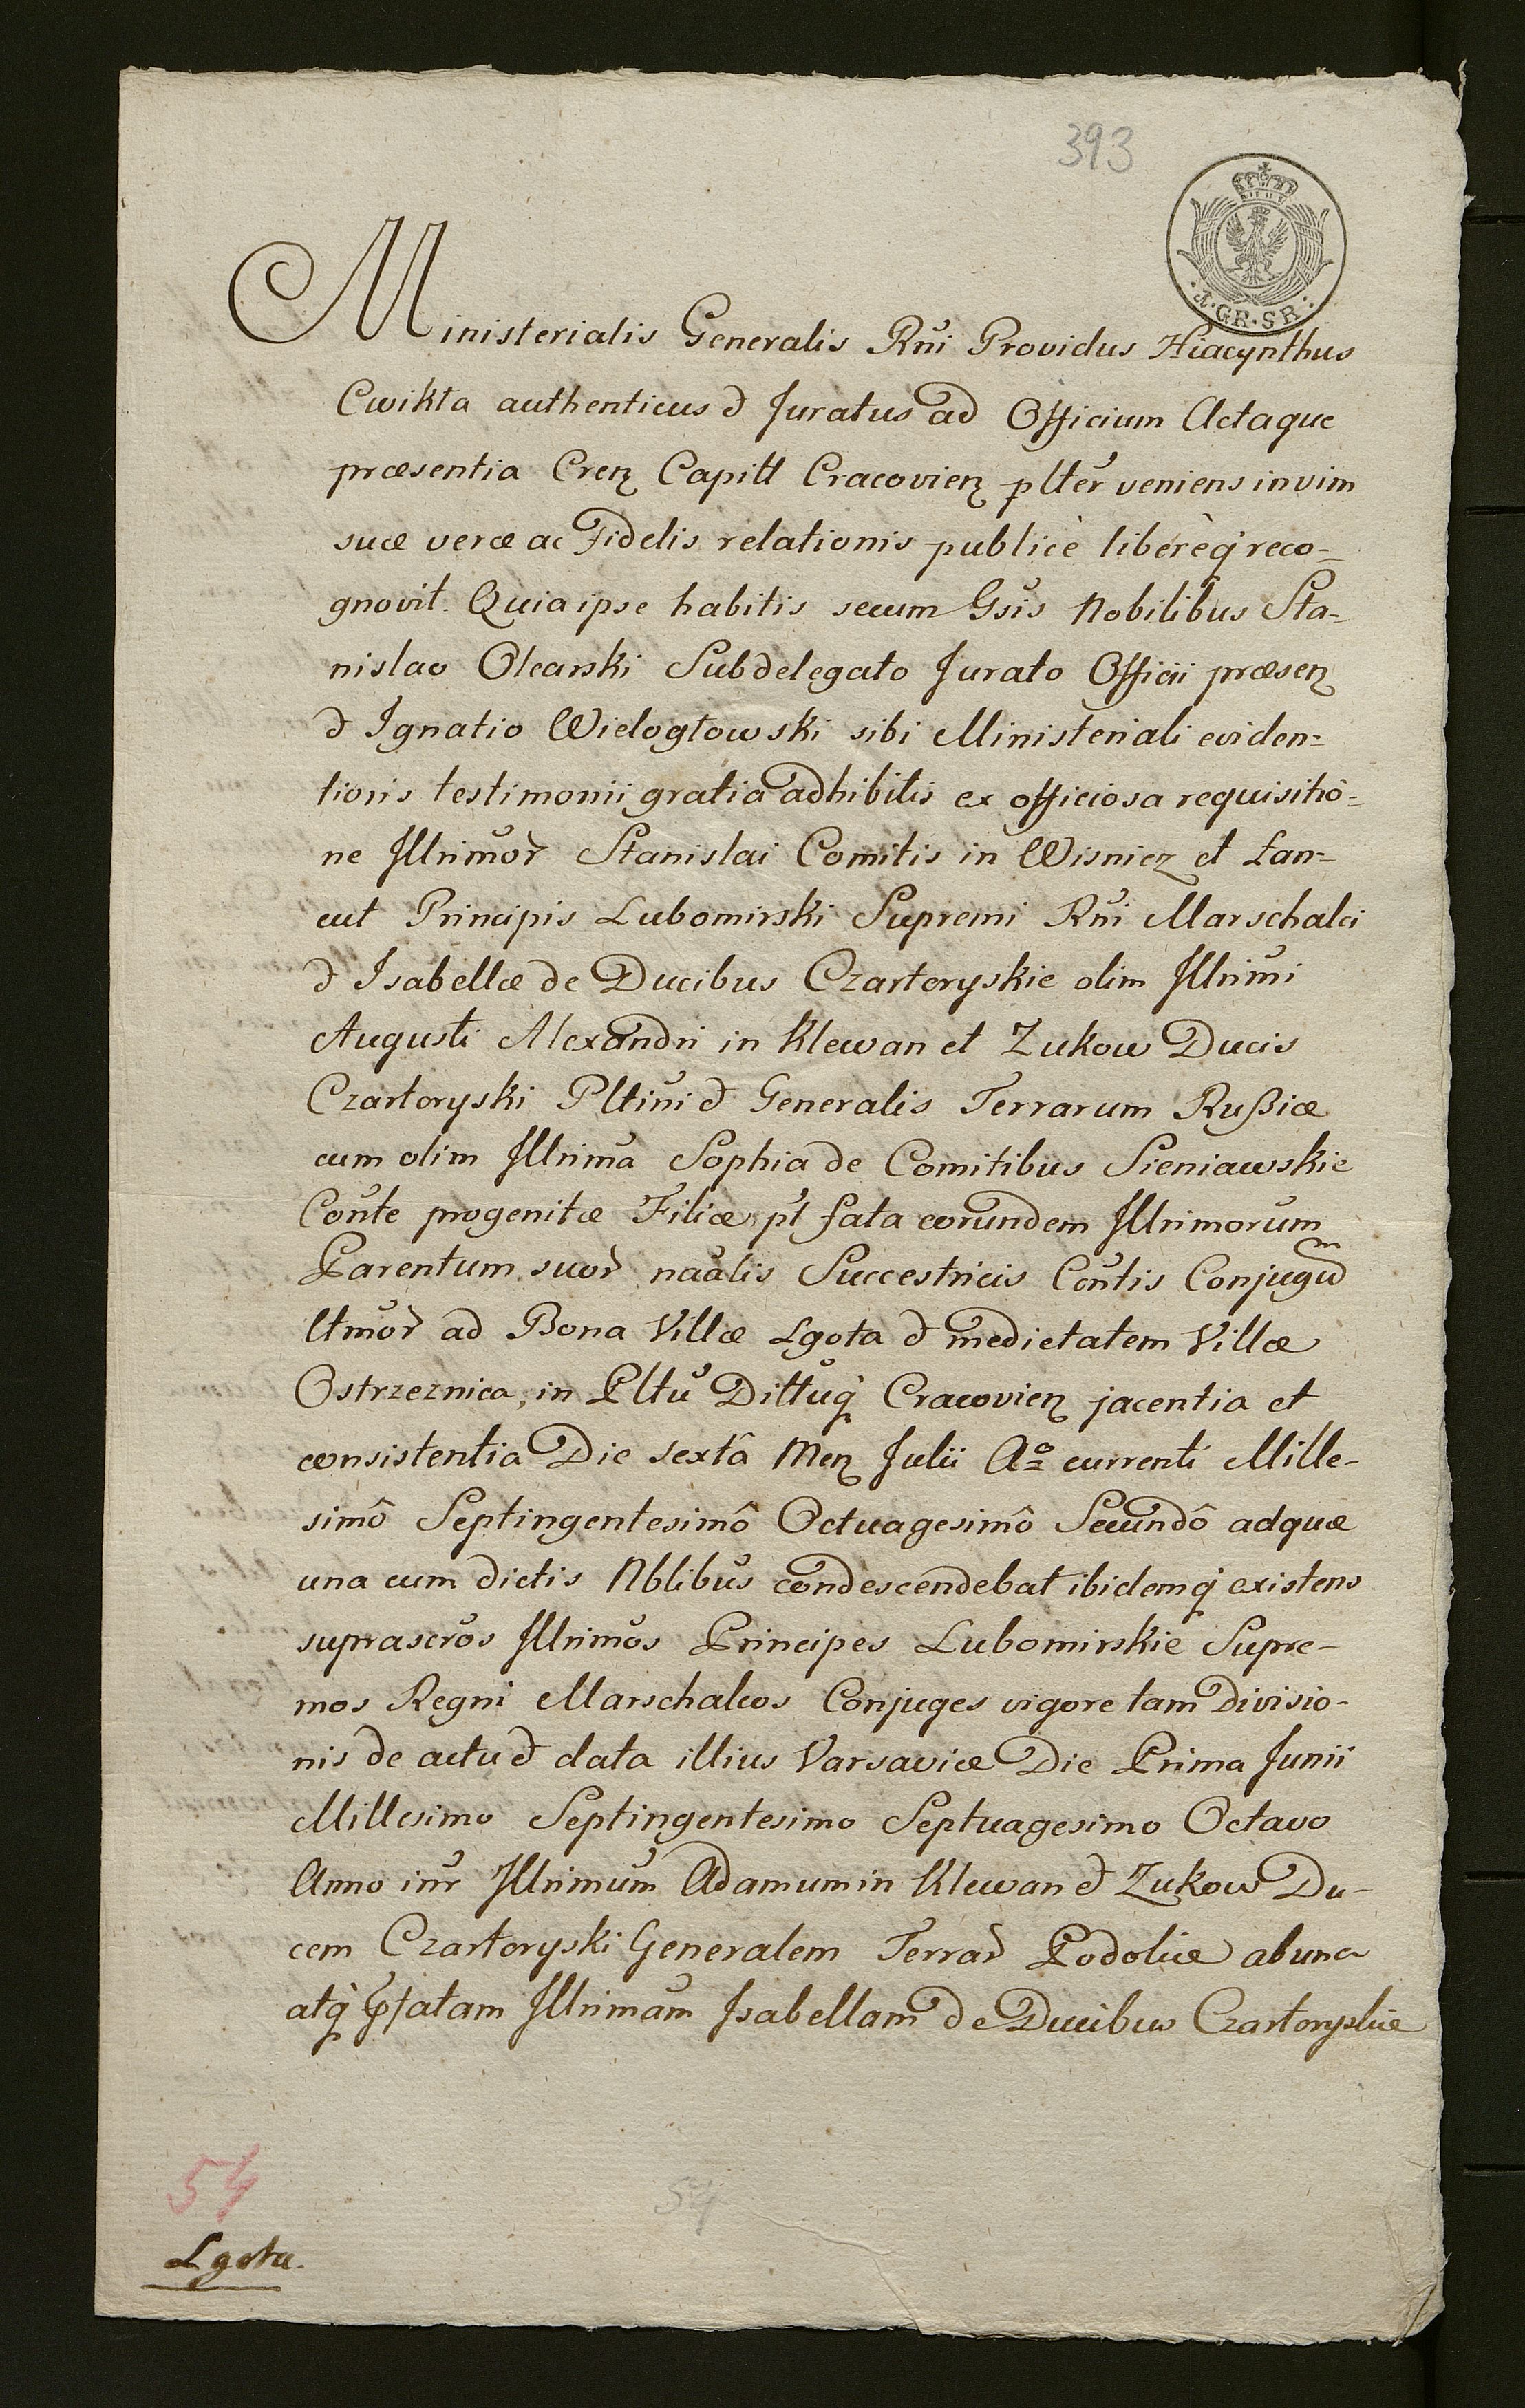 393
·1·GR·SR·
Ministerialis Generalis Rni Providus Hiacynthus
Cwikła authenticus & Juratus ad Officium Actaque
præsentia Cren Capitl Cracovien plter veniens in vim
suæ veræ ac Fidelis relationis publicè liberèq reco=
gnovit. Quia ipse habitis secum Gsis Nobilibus Sta-
nislao Olearski Subdelegato Jurato Officii præsen
& Ignatio Wielogłowski sibi Ministeriali eviden=
tioris testimonii gratia adhibitis ex officiosa requisitiô=
ne Illrimor Stanislai Comitis in Wisnicz et Łan=
cut Principis Lubomirski Supremi Rni Marschalci
& Isabellæ de Ducibus Czartoryskie olim Illrimi
Augusti Alexandri in Klewan et Zukow Ducis
Czartoryski Pltini & Generalis Terrarum Rußiæ
cum olim Illrima Sophia de Comitibus Sieniawskie
Conte progenitæ Filiæ, pt fata eorundem Illrimorum
Parentum suor naalis Successtricis Contis Conjugum
ltmor ad Bona Villæ Lgota & medietatem Villæ
Ostrzeznica, in Pltu Dittuq Cracovien jacentia et
consistentia Die sextâ Men Julii Aº currenti Mille-
simô Septingentesimô Octuagesimô Secundô adquæ
una cum dictis Nblibus condescendebat ibidemq existens
suprascros Illrimos Principes Lubomirskie Supre-
mos Regni Marschalcos Conjuges vigore tam Divisio-
nis de actu & data illius Varsaviæ Die Prima Junii
Millesimo Septingentesimo Septuagesimo Octavo
Anno inr Illrimum Adamum in Klewan & Zukow Du-
cem Czartoryski Generalem Terrar Podoliæ ab una
atq pfatam Illrimam Isabellam de Ducibus Czartoryskie
54
54
Lgota.